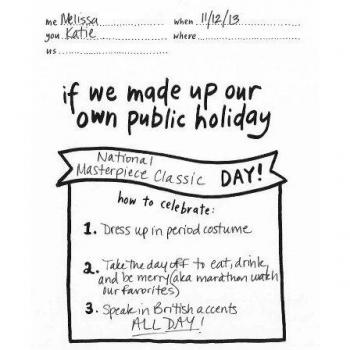 me Melissa when 11/12/13
you Katie where
us
if we made up our
own public holiday
National
Masterpiece Classic DAY!
how to celebrate:
1. Dress up in period costume
2. Take the day off to eat, drink,
and be merry (aka marathon watch
our favorites)
3. Speak in British accents
ALL DAY!